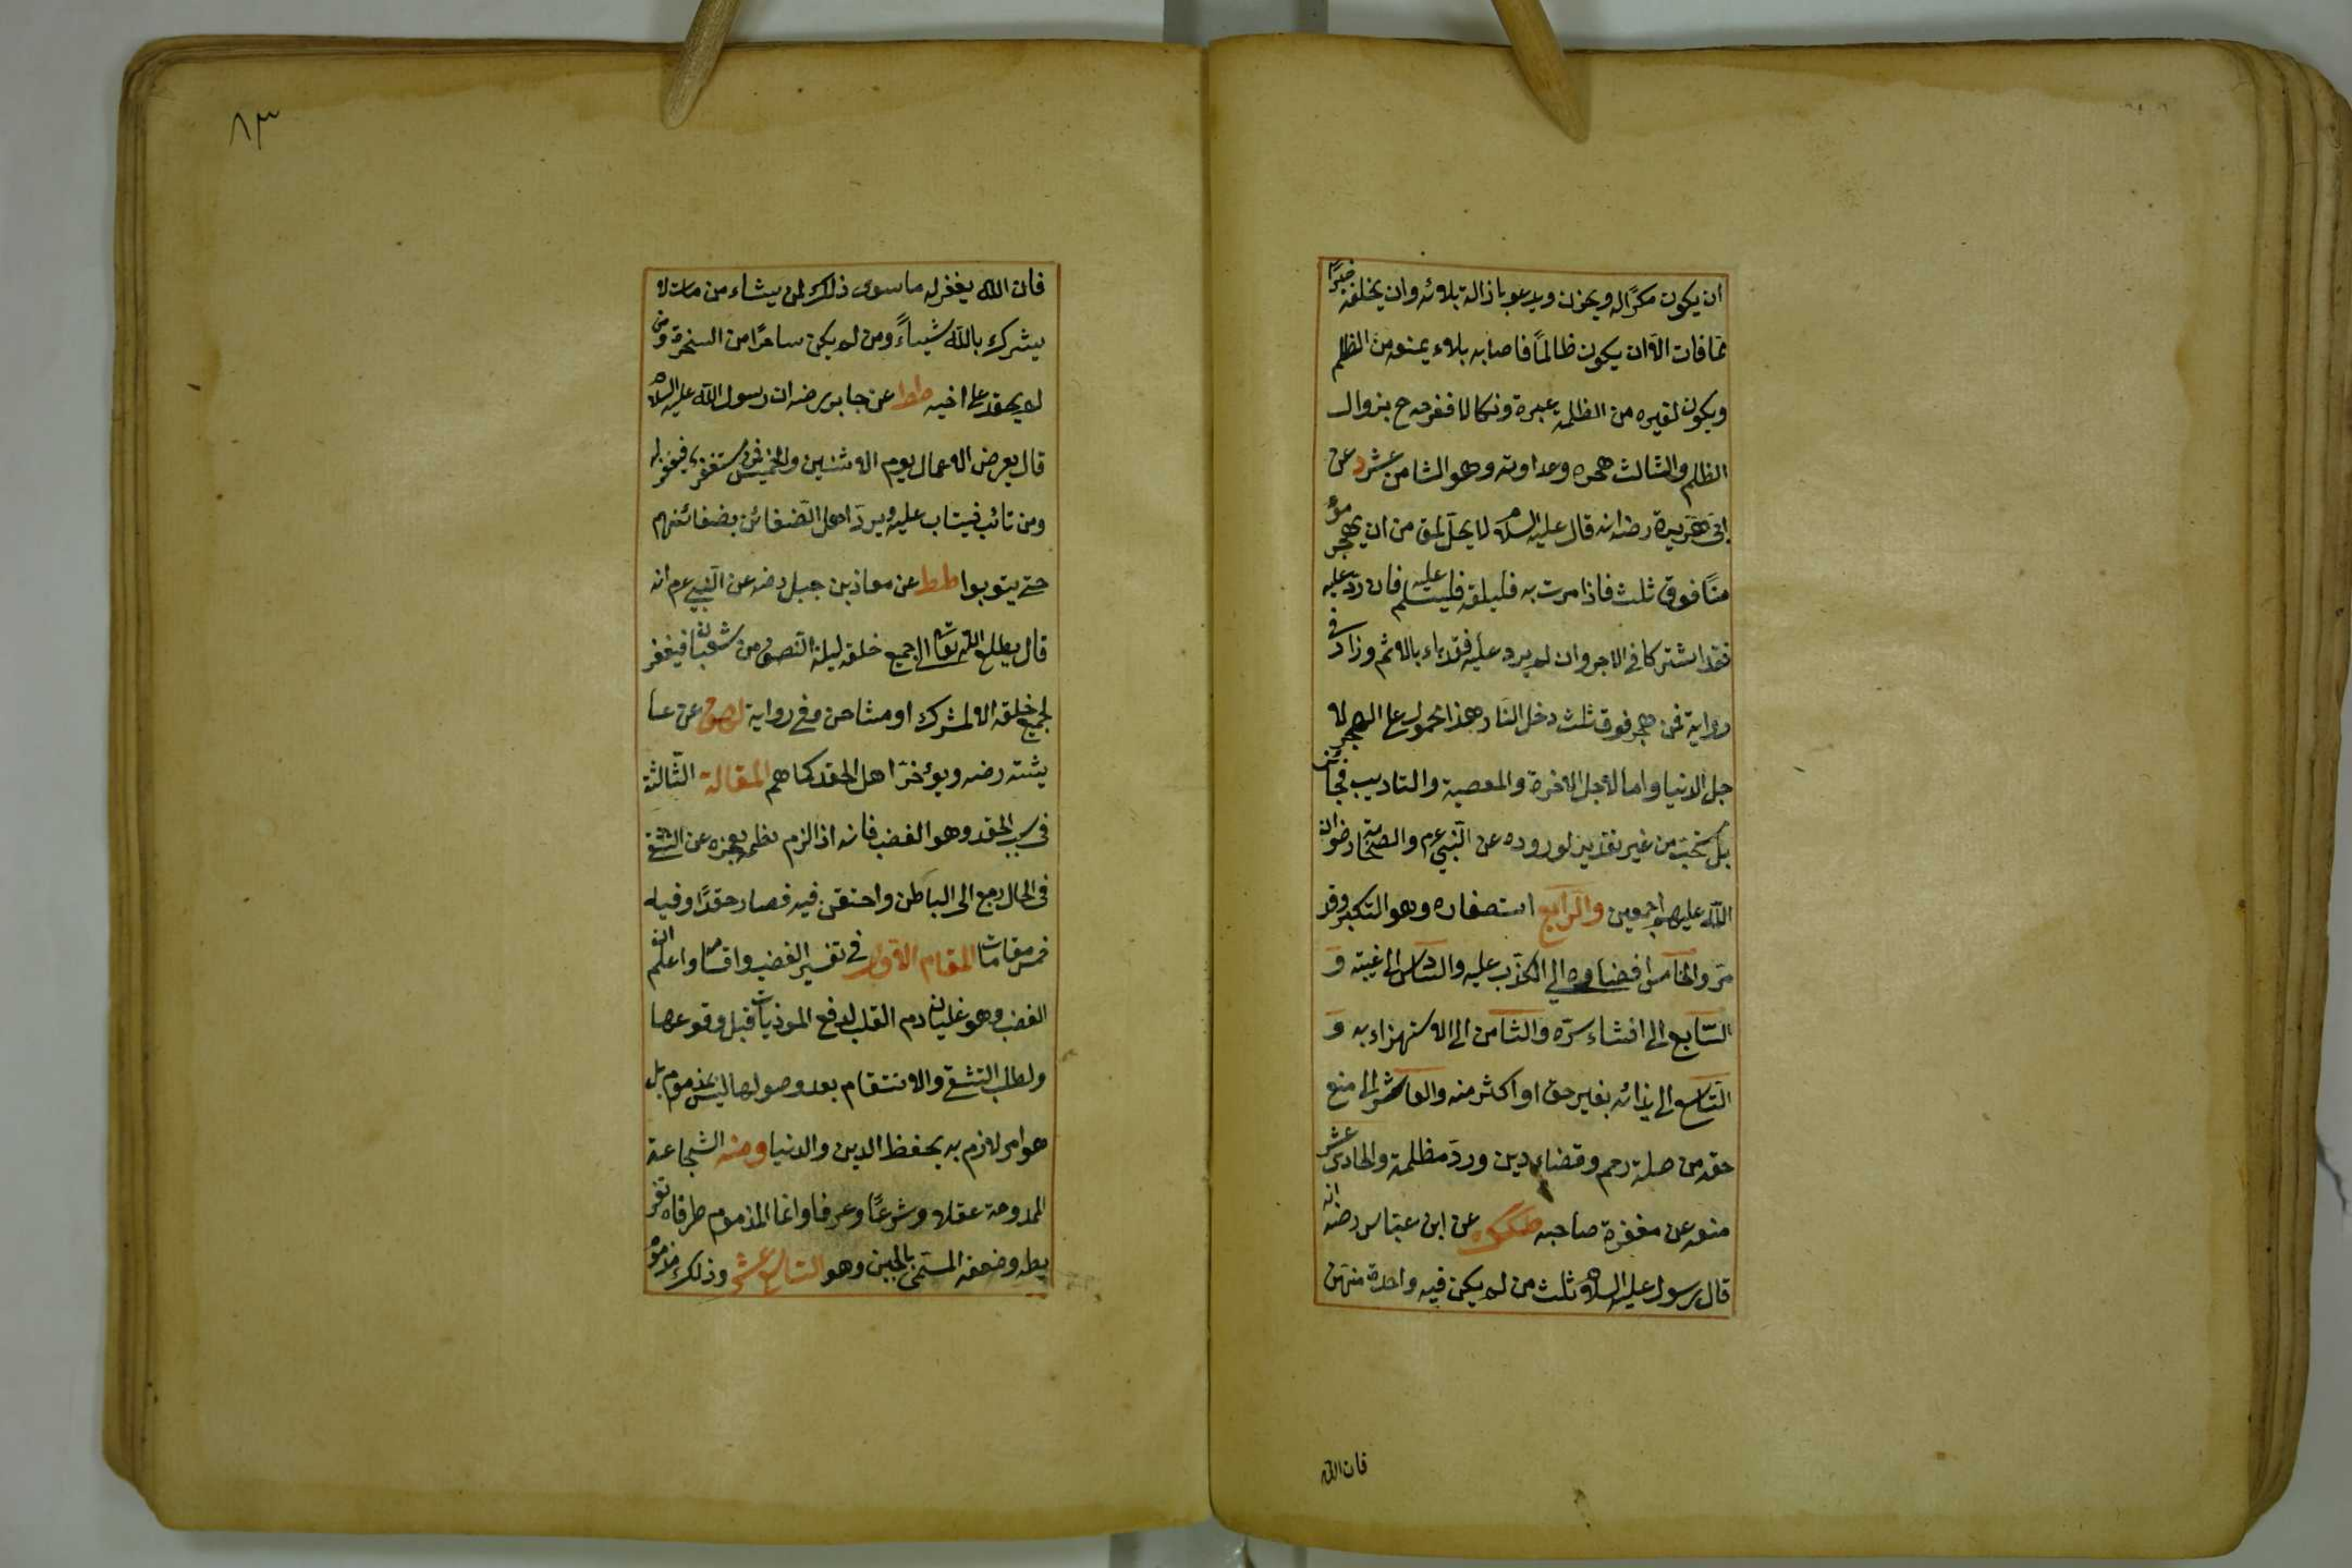 ان يكون مكرًا له ويحزن ويدعو بازالة بلائه وان يخلفه خيرًا
ممّا فات الّا ان يكون ظالمًا فاصابه بلاء يمنعه من الظلم
ويكون لغيره من الظلمة عبرة ونكالا ففرحه ح بزوال
الظلم والثالث هجره وعداوته وهو الثامن عشر د عن
ابى هريرة رضه انه قال عليه السلام لا يحلّ لمؤمن ان يهجر مؤ
منًا فوق ثلث فاذا مرت به ثلث فليلقه فليسلم عليه فان ردّ عليه
فقد اشتركا في الاجر وان لم يرد عليه فقد باء بالاثم وزاد في
رواية فمن هجر فوق ثلث دخل النار هذا محمول على الهجر لا
جل الدنيا واما لاجل الاخرة والمعصية والتاديب فجائز
بل مستحبّ من غير تقدير لوروده عن النّبي عم والصحابة رضوان
الله عليهم اجمعين والرابع استصغاره وهو التكبر وقد
مرّ والخامس افضاؤه الي الكذب عليه والسادس الى غيبته و
السّابع الى افشاء سرّه والثامن الى الاستهزاء به و
التاسع الى ايذائه بغير حق او اكثر منه والعاشر الى منع
حقه من صلة رحم وقضاء دين وردّ مظلمة والحادى عشر
منعه عن مغفرة صاحبه طكطه عن ابن عبّاس رضه انه
قال رسول عليه السلام ثلث من لم يكن فيه واحدة منهن
فان الله
٨٣
فان الله يغفر له ما سوى ذلك لمن يشاء من مات لا
يشرك بالله شيئاً ومن لم يكن ساحرًا من السحرة ومن
لم يحقد على اخيه طط عن جابر رضه ان رسول الله عليه السلام
قال يعرض الاعمال يوم الاثنين والخميس فمن مستغفر فيغفر له
ومن تائب فيتاب عليه ويردّ اهل الضغائن بضغائنهم
حتى يتوبوا طط عن معاذ بن جبل رضه عن النّبي عم انه
قال يطلع الله تعالى الى جميع خلقه ليلة النّصف من شعبان فيغفر
لجميع خلقه الا لمشرك او مشاحن وفي رواية عن عا
يشته رضه ويؤخر اهل الحقد كما هم المقالة الثّالثة
فى سبب الحقد وهو الغضب فانه اذا لزم كظمه لعجزه عن التشفي
فى الحال رجع الى الباطن واحتقن فيه فصار حقدًا وفيه
خمس مقامات المقام الاوّل في تفسير الغضب واقسامه واعلم ان
الغضب وهو غليان دم القلب لدفع الموذيات قبل وقوعها
ولطلب التشفي والانتقام بعد وصولها ليس بمذموم بل
هو امر لازم به يحفظ الدين والدنيا ومنه الشجاعة
الممدوحة عقلا وشرعًا وعرفا وانما المذموم طرفاه تفر
يطه وضعفه المسمّى بالجبن وهو التاسع عشر وذلك مذموم